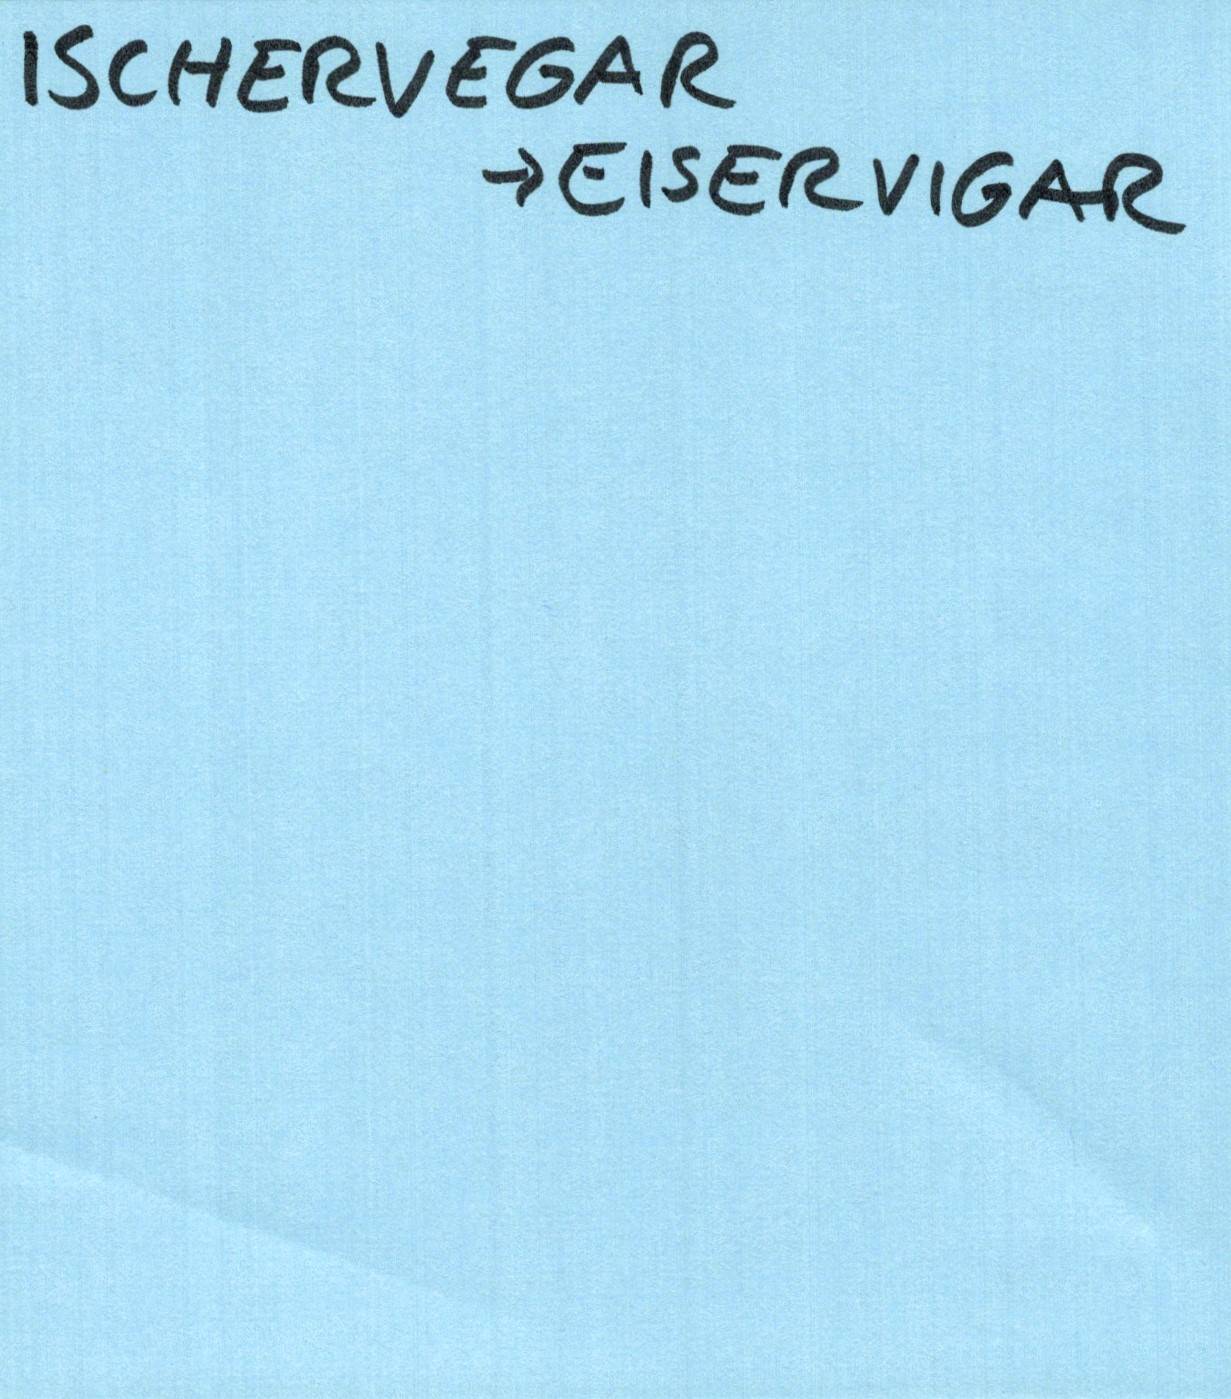 ISCHERVEGAR
→EISERVIGAR